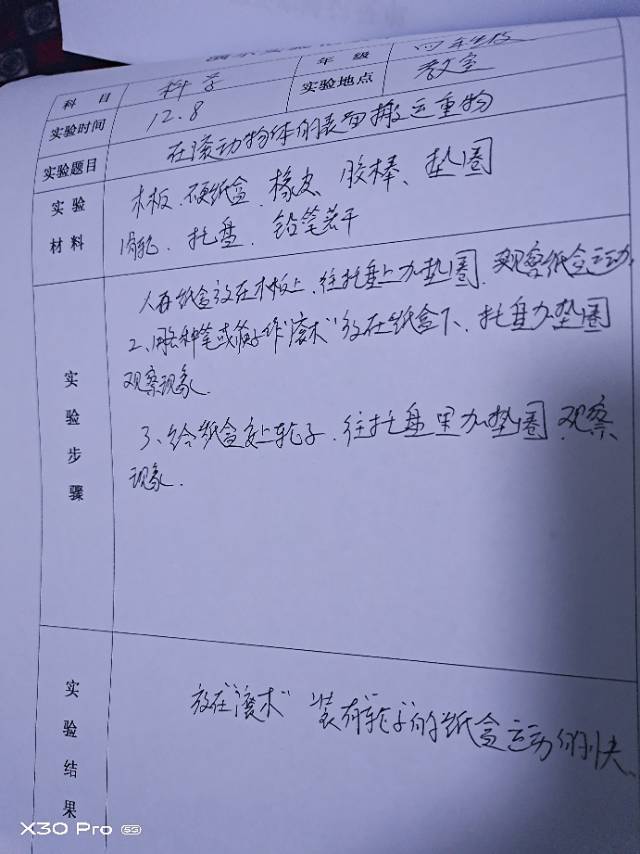 科 目 科学 年 级 四年级
实验时间 12.8 实验地点 教室
实验题目 在滚动物体的表面搬运重物
实 验 木板、硬纸盒、橡皮、胶棒、垫圈
材 料 滑轮、托盘、铅笔若干
1、在纸盒放在木板上、往托盘上加垫圈、观察纸盒运动
2、用各种笔或筷子作"滚木"放在纸盒下、托盘加垫圈
观察现象.
3、给纸盒安上轮子、往托盘里加垫圈、观察
现象.
实
验
步
骤
放在"滚木" 装有"轮子"的纸盒运动的快、
实
验
结
果
X30 Pro 5G